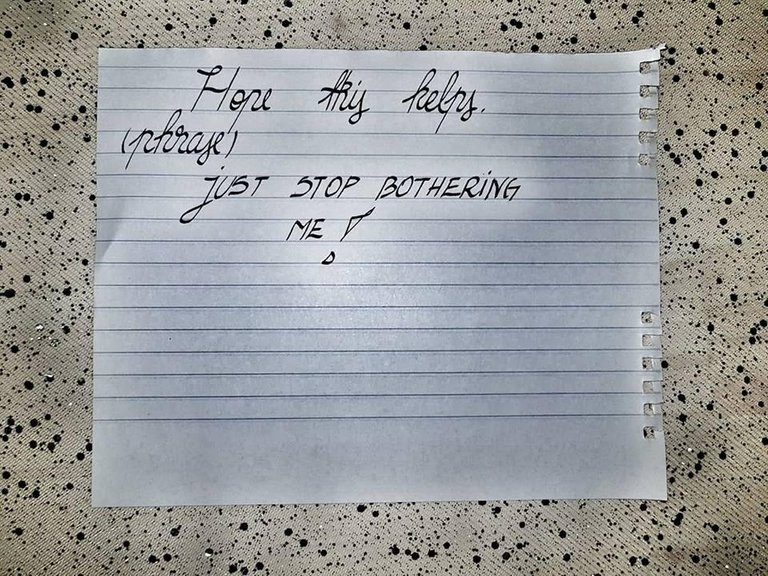 Hope this helps.
(phrase)
JUST STOP BOTHERING
ME!